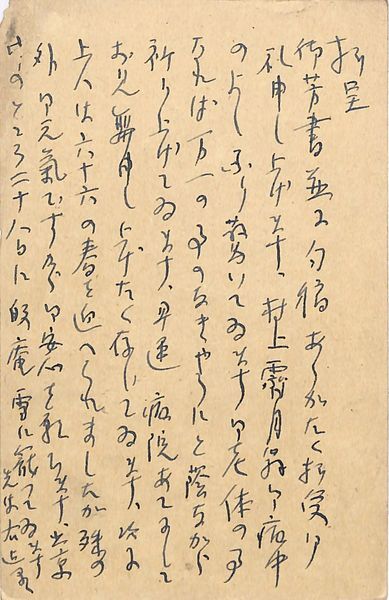 拝呈
御芳書並に句稿ありがたく拝受御
礼申し上げます、村上霽月翁御病中
のよし 驚いてゐます 御老体の事
なれば万一の事のなきやうにと蔭ながら
祈り上げてゐます、早速 病院あてにして
お見舞申し上げたく存じてゐます、
上人は六十六の春を迎へられましたが殊の
外御元気ですから御安心を願ひます、
このところ二十八日に 庵 雪に籠つてゐます
先は右迄